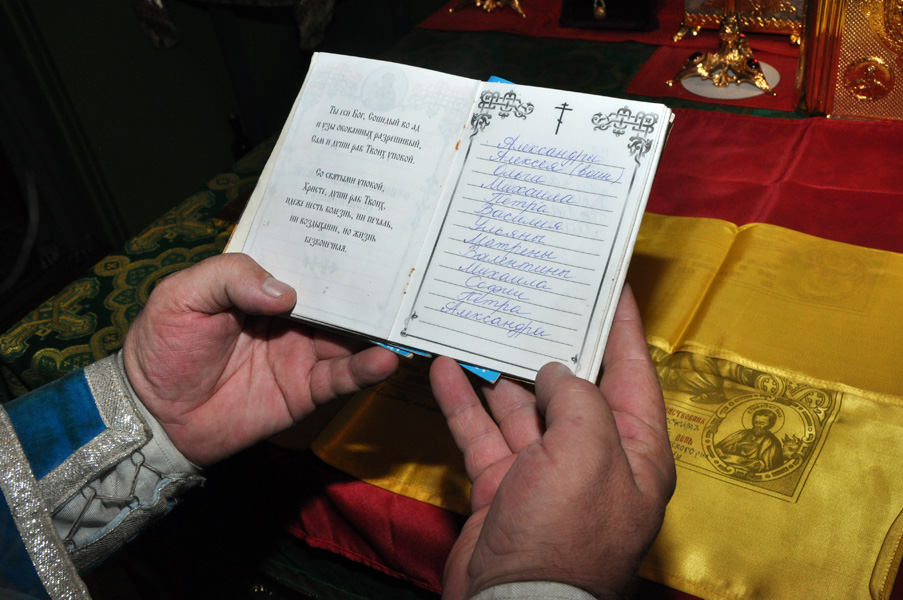 Ты еси Бог, Сошедый во ад
и узы окованных разрешивый,
Сам и души раб Твоих упокой.
Со святыми упокой,
Христе, души раб Твоих,
идеже несть болезнь, ни печаль,
ни воздыхание, но жизнь
безконечная.
Александры
Алексея (воин)
Ольга
Михаила
Петра
Василия
Ульяны
Матрены
Валентины
Михаила
Софии
Петра
Александры